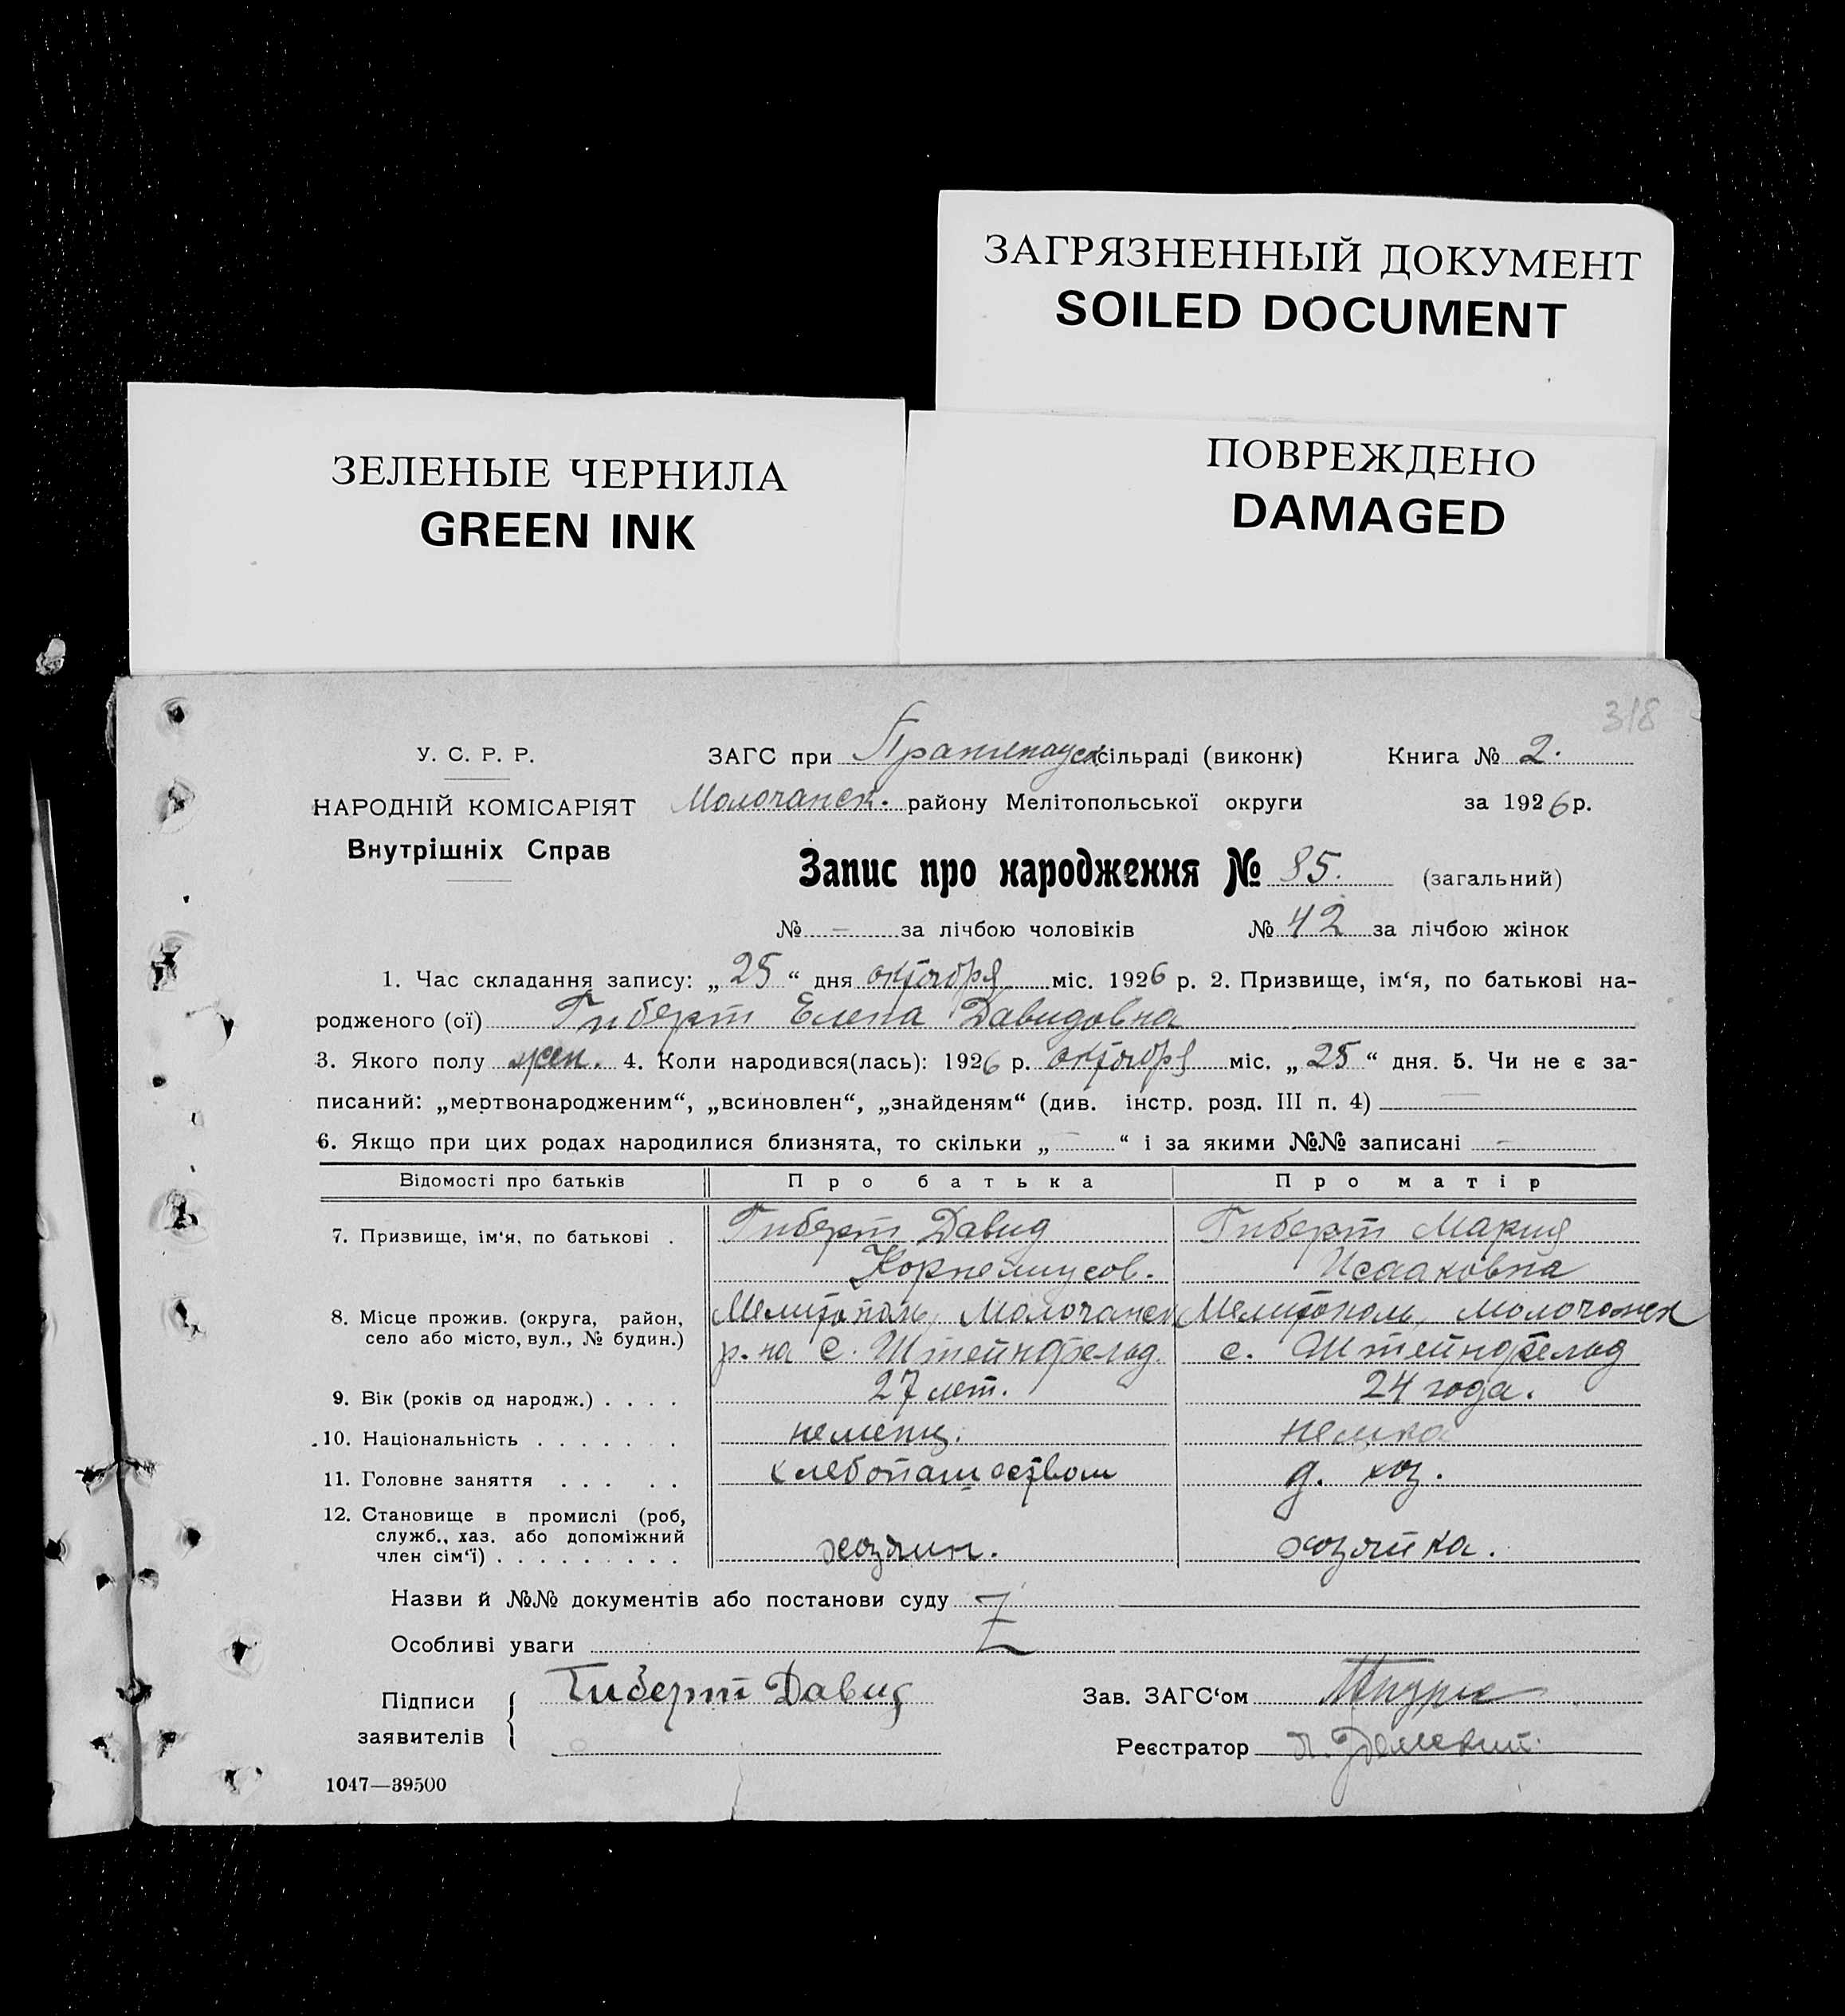 ЗАГРЯЗНЕННЫЙ ДОКУМЕНТ
SOILED DOCUMENT
ЗЕЛЕНЫЕ ЧЕРНИЛА
GREEN INK
ПОВРЕЖДЕНО
DAMAGED
318
У. С. Р. Р.
НАРОДНІЙ КОМІСАРІЯТ
Внутрішніх Справ
ЗАГС при сільраді (виконк) Книга № 2.
Молочанск. району Мелітопольської округи за 1926 р.
Запис про народження № 85. (загальний)
№ – за лічбою чоловіків № 42 за лічбою жінок
1. Час складання запису: „25“ дня октября міс. 1926 р. 2. Призвище, ім‘я, по батькові на-
родженого (ої) Гиберт Елена Давидовна
3. Якого полу жен. 4. Коли народився(лась): 1926 р. октября міс. „25“ дня. 5. Чи не є за-
писаний: „мертвонародженим“, „всиновлен“, „знайденям“ (див. інстр. розд. III п. 4) —
6. Якщо при цих родах народилися близнята, то скільки „ — “ і за якими №№ записані —
Відомості про батьків Про батька Про матір
7. Призвище, ім‘я, по батькові . Гиберт Давид Гиберт Мария
Корнелиусов. Исааковна
8. Місце прожив. (округа, район, Мелитополь, Молочанск Мелитополь, Молочанск
село або місто, вул., № будин.) р-на с. Штейнфельд. с. Штейнфельд
9. Вік (років од народж.) . . . . 27 лет. 24 года.
10. Національність . . . . . . . немец. немка
11. Головне заняття . . . . . хлебопашеством д. хоз.
12. Становище в промислі (роб,
служб., хаз. або допоміжний
член сім‘ї) . . . . . . . . . хозяин. хозяйка.
Назви й №№ документів або постанови суду
Особливі уваги
Підписи Гиберт Давид Зав. ЗАГС‘ом
заявителів Реєстратор
1047—39500